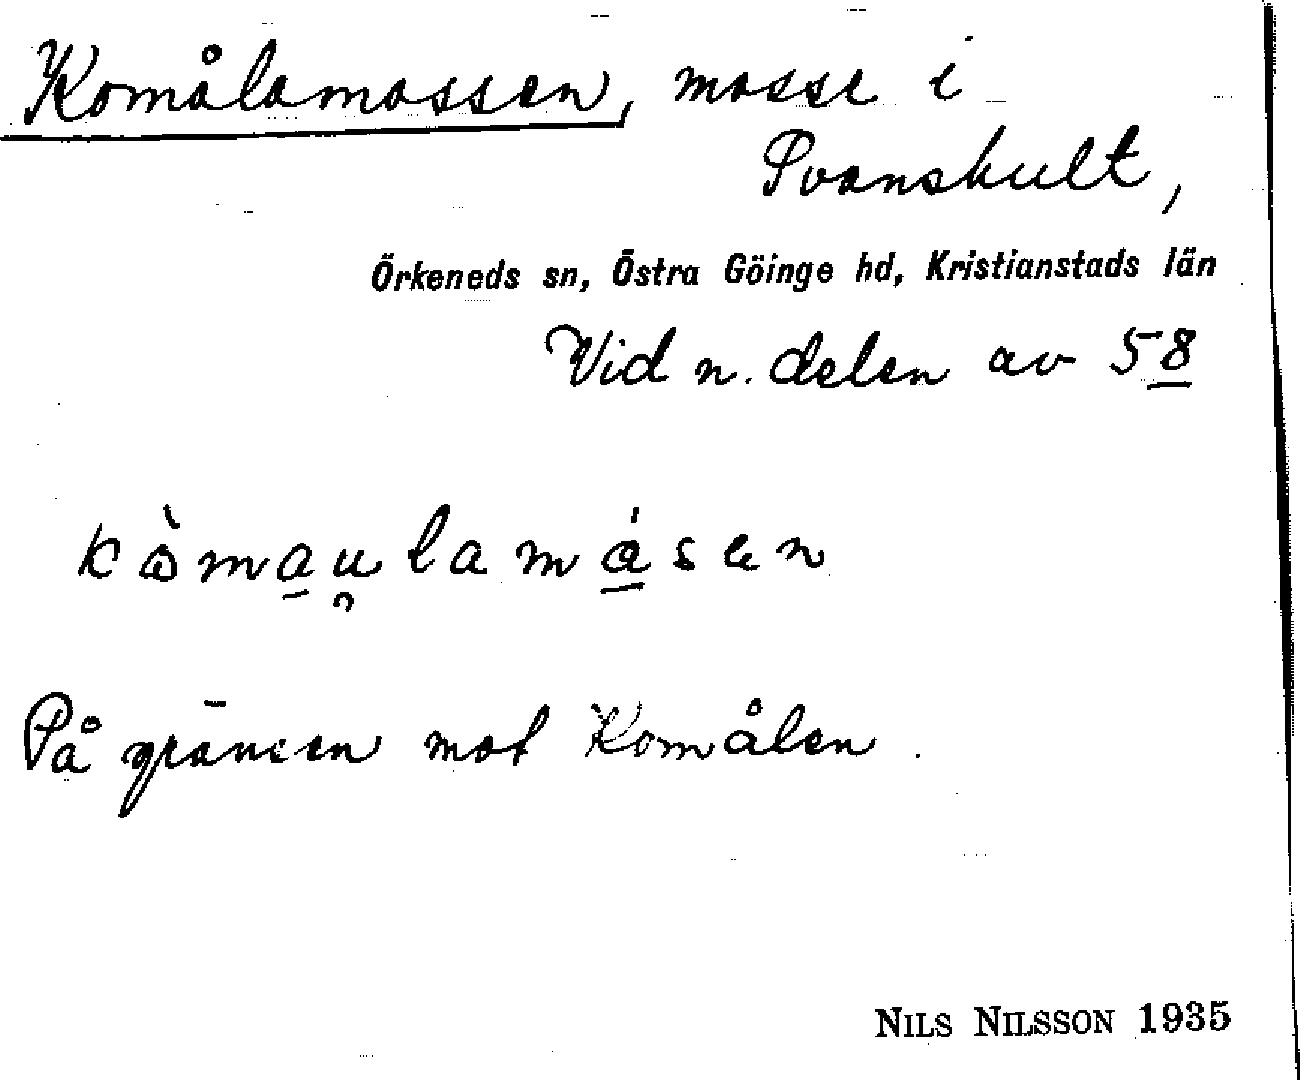 Komålamossen, mosse i
Svanshult,
Örkeneds sn, Östra Göinge hd, Kristianstads län
Vid n. delen av 58
kòmau̯lamåsen
På gränsen mot Komålen.
NILS NILSSON 1935